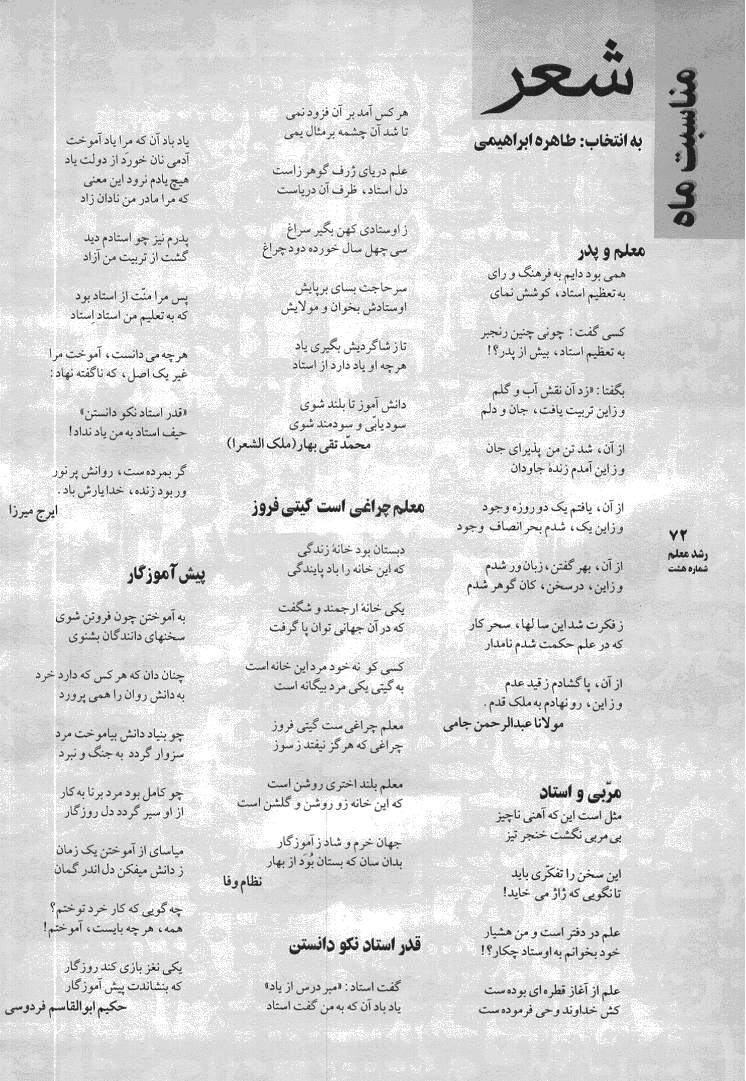 مناسبت ماه
شعر
به انتخاب: طاهره ابراهیمی
معلم و پدر
همی بود دایم به فرهنگ و رای
به تعظیم استاد، کوشش نمای
کسی گفت: چونی چنین رنجبر
به تعظیم استاد، بیش از پدر؟!
بگفتا: «زد آن نقش آب و گلم
و زاین تربیت یافت، جان و دلم
از آن، شد تن من پذیرای جان
و زاین آمدم زندهٔ جاودان
از آن، یافتم یک دو روزه وجود
و زاین یک، شدم بحر انصاف وجود
از آن، بهر گفتن، زبان ور شدم
و زاین، در سخن، کان گوهر شدم
ز فکرت شد این سالها، سحر کار
که در علم حکمت شدم نامدار
از آن، پا گشادم ز قید عدم
و ز این، رو نهادم به ملک قدم.
مولانا عبدالرحمن جامی
مربّی و استاد
مثل است این که آهنی ناچیز
بی مربی نگشت خنجر تیز
این سخن را تفکّری باید
تا نگویی که ژاژ می خاید!
علم در دفتر است و من هشیار
خود بخوانم به اوستاد چکار؟!
علم از آغاز قطره ای بوده ست
کش خداوند وحی فرموده ست
هر کس آمد بر آن فزود نمی
تا شد آن چشمه بر مثال یمی
علم دریای ژرف گوهر زاست
دل استاد، ظرف آن دریاست
ز اوستادی کهن بگیر سراغ
سی چهل سال خورده دود چراغ
سر حاجت بسای بر پایش
اوستادش بخوان و مولایش
تا ز شاگردیش بگیری یاد
هرچه او یاد دارد از استاد
دانش آموز تا بلند شوی
سود یابّی و سودمند شوی
محمّد تقی بهار (ملک الشعرا)
معلم چراغی است گیتی فروز
دبستان بود خانهٔ زندگی
که این خانه را باد پایندگی
یکی خانهٔ ارجمند و شگفت
که در آن جهانی توان پا گرفت
کسی کو نه خود مرد این خانه است
به گیتی یکی مرد بیگانه است
معلم چراغی ست گیتی فروز
چراغی که هرگز نیفتد ز سوز
معلم بلند اختری روشن است
که این خانه زو روشن و گلشن است
جهان خرم و شاد ز آموزگار
بدان سان که بستان بُوَد از بهار
نظام وفا
قدر استاد نکو دانستن
گفت استاد: «مبر درس از یاد»
یاد باد آن که به من گفت استاد
یاد باد آن که مرا یاد آموخت
آدمی نان خورد از دولت یاد
هیچ یادم نرود این معنی
که مرا مادر من نادان زاد
پدرم نیز چو استادم دید
گشت از تربیت من آزاد
پس مرا منّت از استاد بود
که به تعلیم من استاد اِستاد
هرچه می دانست، آموخت مرا
غیر یک اصل، که ناگفته نهاد:
«قدر استاد نکو دانستن»
حیف استاد به من یاد نداد!
گر بمرده ست، روانش پر نور
ور بود زنده، خدا یارش باد.
ایرج میرزا
پیش آموزگار
به آموختن چون فروتن شوی
سخنهای دانندگان بشنوی
چنان دان که هر کس که دارد خرد
به دانش روان را همی پرورد
چو بنیاد دانش بیاموخت مرد
سزوار گردد به جنگ و نبرد
چو کامل بود مرد برنا به کار
از او سیر گردد دل روزگار
میاسای از آموختن یک زمان
ز دانش میفکن دل اندر گمان
چه گویی که کار خرد توختم؟
همه، هر چه بایست، آموختم!
یکی نغز بازی کند روزگار
که بنشاندت پیش آموزگار
حکیم ابوالقاسم فردوسی
۷۲
رشد معلم
شماره هشت